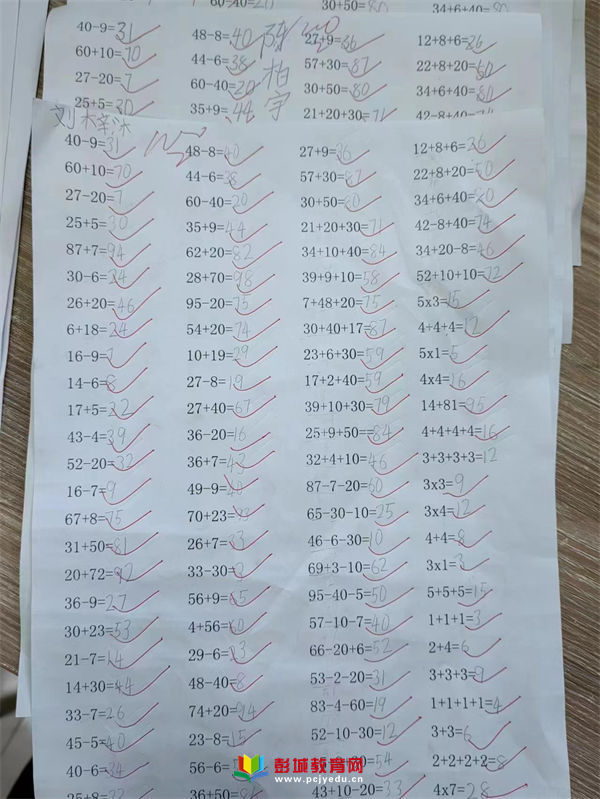 60-40=20 30+50=80 34+6+40=80
40-9=31 48-8=40 27+9=36 12+8+6=26
60+10=70 44-6=38 57+30=87 22+8+20=50
27-20=7 60-40=20 30+50=80 34+6+40=80
25+5=30 35+9=44 21+20+30=71 42-8+40=74
40-9=31 48-8=40 27+9=36 12+8+6=26
60+10=70 44-6=38 57+30=87 22+8+20=50
27-20=7 60-40=20 30+50=80 34+6+40=80
25+5=30 35+9=44 21+20+30=71 42-8+40=74
87+7=94 62+20=82 34+10+40=84 34+20-8=46
30-6=24 28+70=98 39+9+10=58 52+10+10=72
26+20=46 95-20=75 7+48+20=75 5x3=15
6+18=24 54+20=74 30+40+17=87 4+4+4=12
16-9=7 10+19=29 23+6+30=59 5x1=5
14-6=8 27-8=19 17+2+40=59 4x4=16
17+5=22 27+40=67 39+10+30=79 14+81=95
43-4=39 36-20=16 25+9+50=84 4+4+4+4=16
52-20=32 36+7=43 32+4+10=46 3+3+3+3=12
16-7=9 49-9=40 87-7-20=60 3x3=9
67+8=75 70+23= 65-30-10=25 3x4=12
31+50=81 26+7=33 46-6-30=10 4+4=8
20+72=92 33-30=3 69+3-10=62 3x1=3
36-9=27 56+9=65 95-40-5=50 5+5+5=15
30+23=53 4+56=60 57-10-7=40 1+1+1=3
21-7=14 29-6=23 66-20+6=52 2+4=6
14+30=44 48-40=8 53-2-20=31 3+3+3=9
33-7=26 74+20=94 83-4-60=19 1+1+1+1=4
45-5=40 23-8=15 52-10-30=12 3+3=6
40-6=34 56-6= =54 2+2+2+2=8
25+8=33 36+50=86 43+10-20=33 4x7=28
彭城教育网
www.pcjyedu.cn